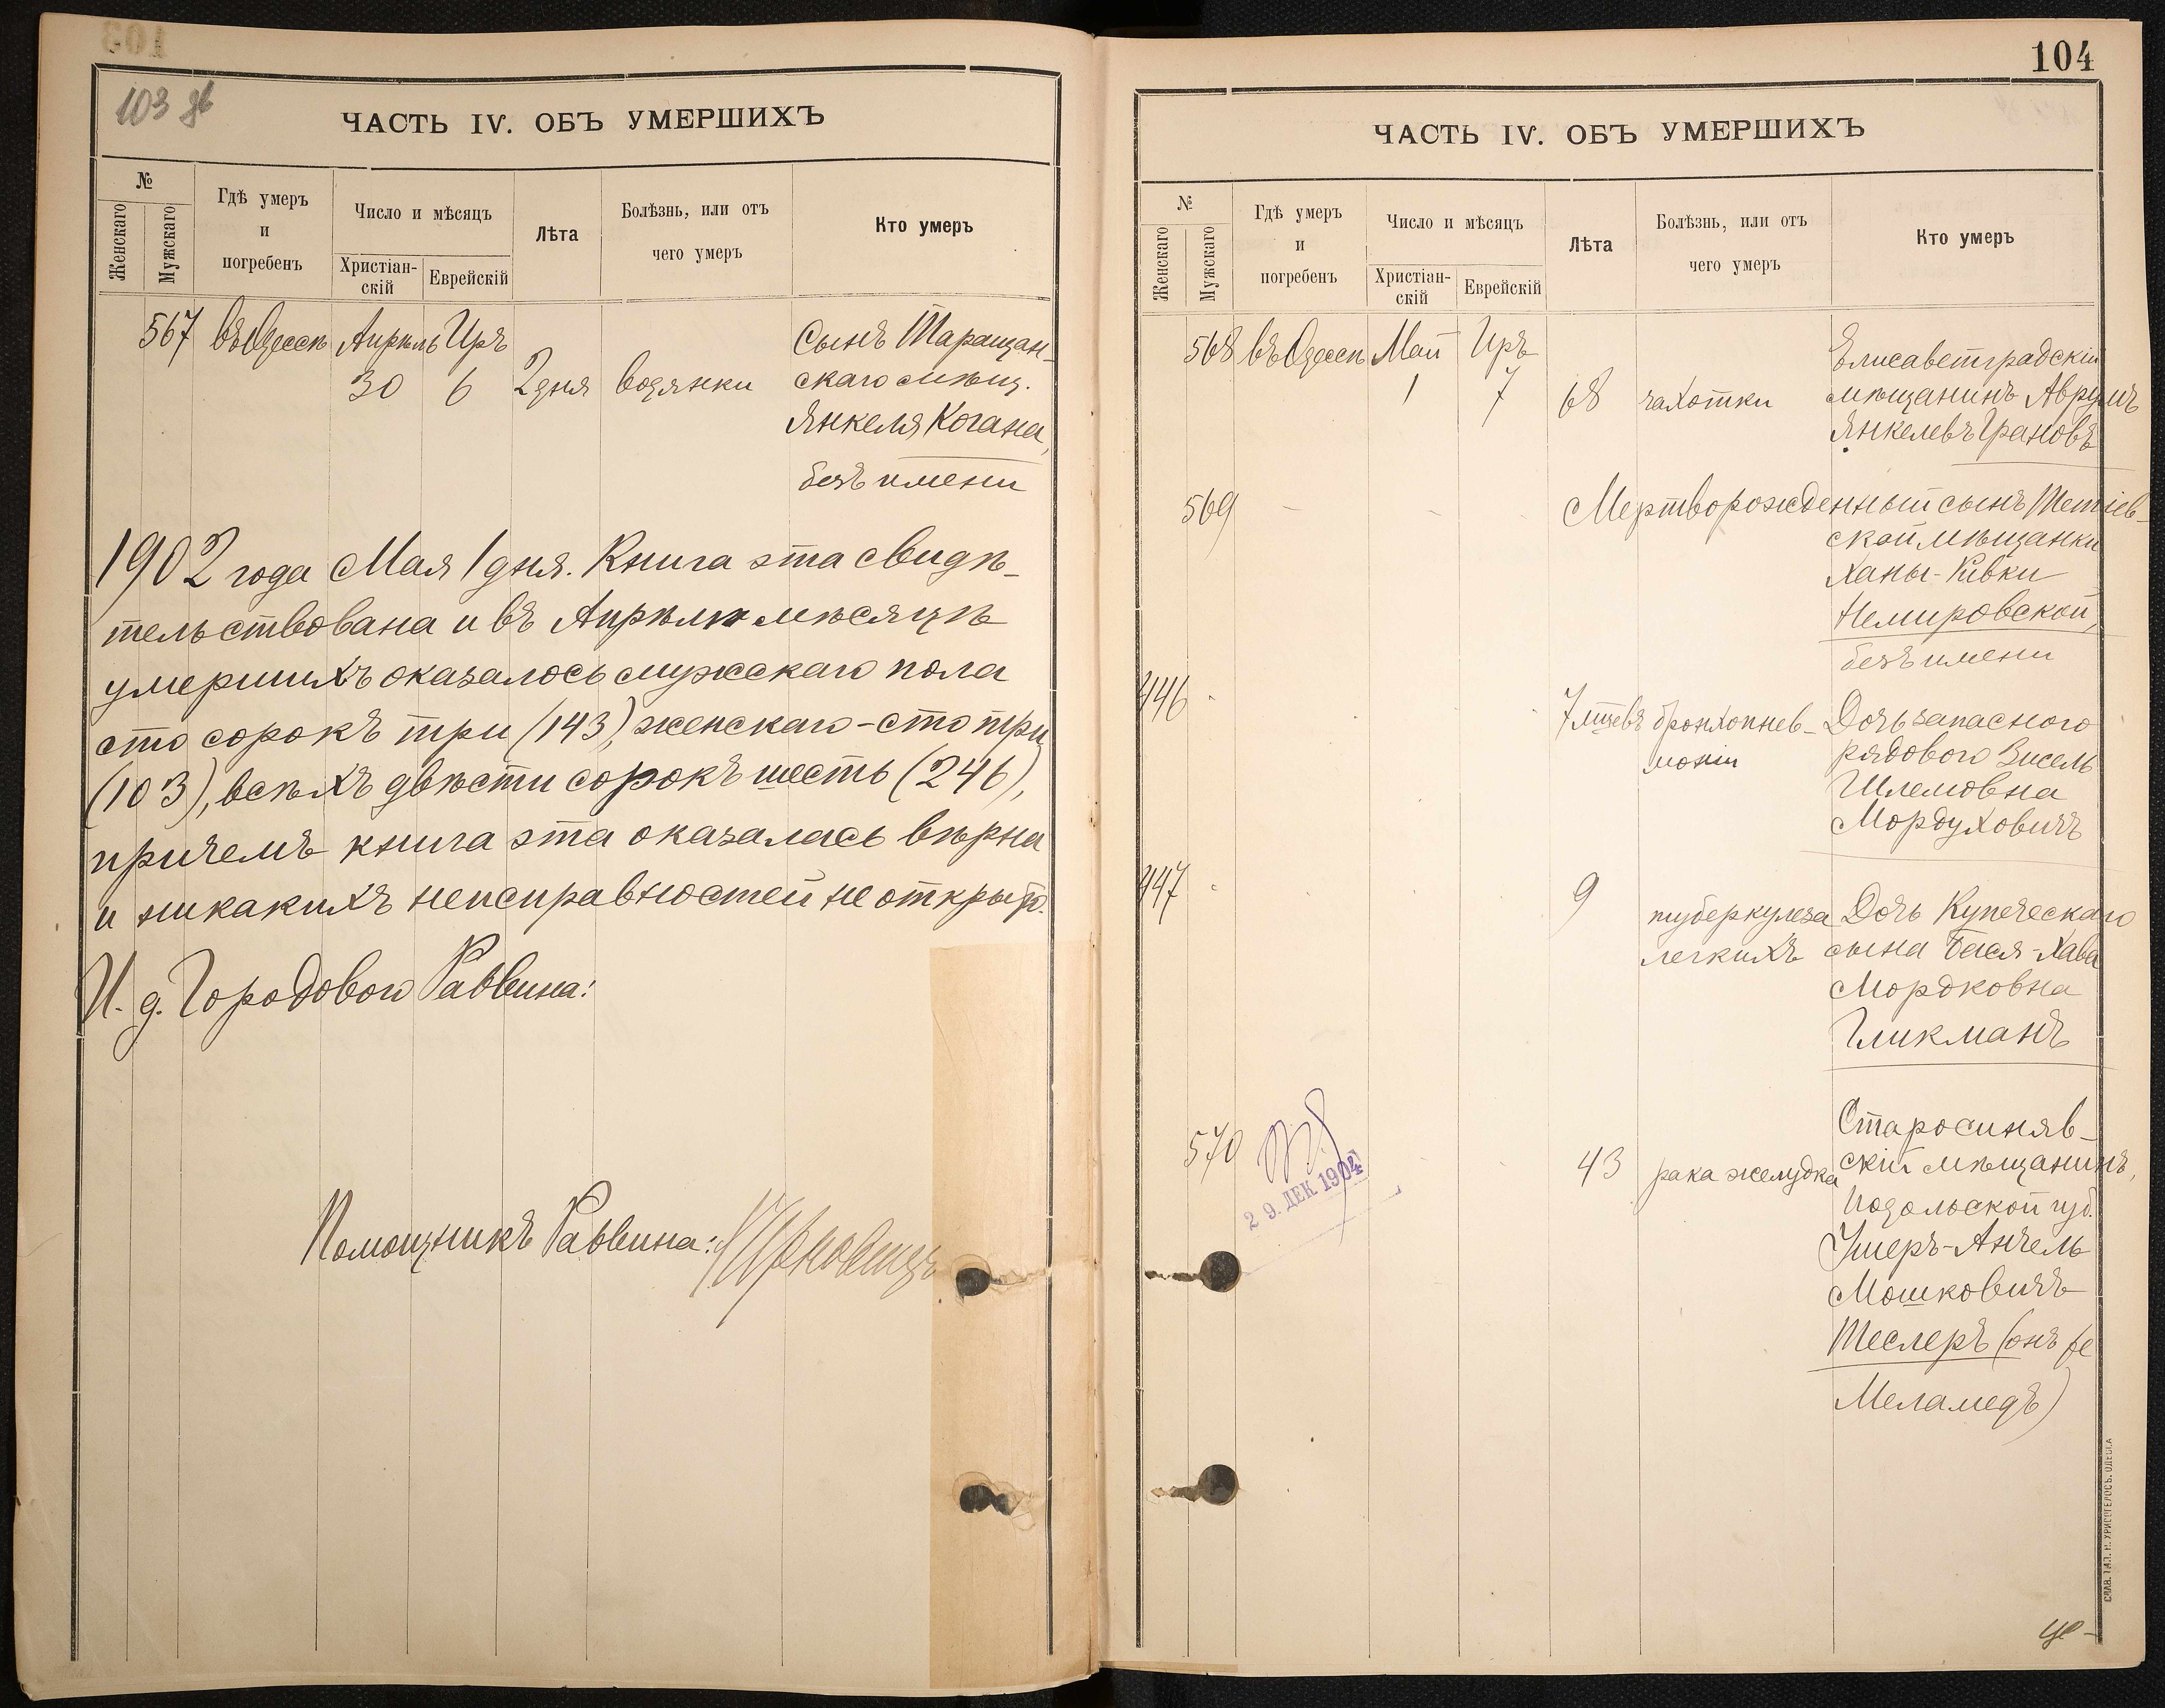 103
103 об
ЧАСТЬ IV. ОБЪ УМЕРШИХЪ
№
Женскаго
Мужскаго
Гдѣ умеръ
и
погребенъ
Число и мѣсяцъ
Христіан-
скій
Еврейскій
Лѣта
Болѣзнь, или отъ
чего умеръ
Кто умеръ
567 въ Одессѣ Апрѣль Иръ Сынъ Таращан-
30 6 2 дня водянки скаго мѣщ.
Янкеля Когана,
безъ имени
1902 года Мая 1 дня. Книга эта свидѣ-
тельствована и въ Апрѣлѣ мѣсяцѣ
умершихъ оказалось мужскаго пола
сто сорокъ три (143), женскаго - сто три
(103), всѣхъ двѣсти сорокъ шесть (246),
причемъ книга эта оказалась вѣрна
и никакихъ неисправностей не открыто.
И. д. Городового Раввина:
Помощникъ Раввина:
104
ЧАСТЬ IV. ОБЪ УМЕРШИХЪ
№
Женскаго
Мужскаго
Гдѣ умеръ
и
погребенъ
Число и мѣсяцъ
Христіан-
скій
Еврейскій
Лѣта
Болѣзнь, или отъ
чего умеръ
Кто умеръ
568 въ Одессѣ Май Иръ Елисаветградскій
1 7 68 чахотки мѣщанинъ Аврумъ
Янкелевъ Грановъ
569 - Мертворожденный сынъ Тетіев-
ской мѣщанки
Ханы-Ривки
Немировской,
безъ имени
446 7 мѣсцевъ бронхопнев- Дочь запасного
моніи рядового Зисель
Шлемовна
Мордуховичъ
447 9 туберкулеза Дочь Купеческаго
легкихъ сына Бася-Хава
Мордковна
Гликманъ
Старосиняв-
570 43 рака желудка скій мѣщанинъ,
Подольской губ.
Ушеръ-Анчель
Мошковичъ
Теслеръ (онъ же
Меламедъ)
29. ДЕК 1904
СЛАВ. ТИП. Н. ХРИСОГЕЛОСЪ. ОДЕССА